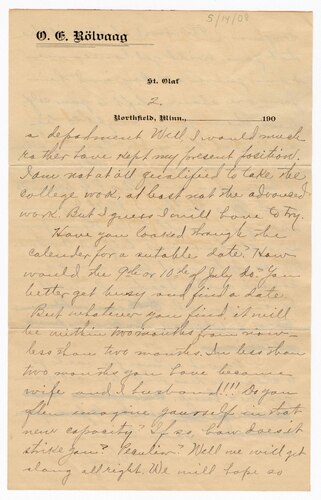 5/14/08
O. E. Rölvaag
St. Olaf
2.
Northfield, Minn., 190
a department Well I would much
rather have kept my present position.
I am not at all qualified to take the
college work, at least not the advanced
work. But I guess I will have to try.
Have you looked through the
calender for a suitable date? How
would the 9th or 10th of July do? You
better get busy and find a date.
But whatever you find, it will
be within two months from now –
less than two months. In less than
two months you have became
wife and I husband!!! Do you
often imagine yourself in that
new capacity? If so, how does it
strike you? Peculiar? Well me will get
along all right. We will hope so